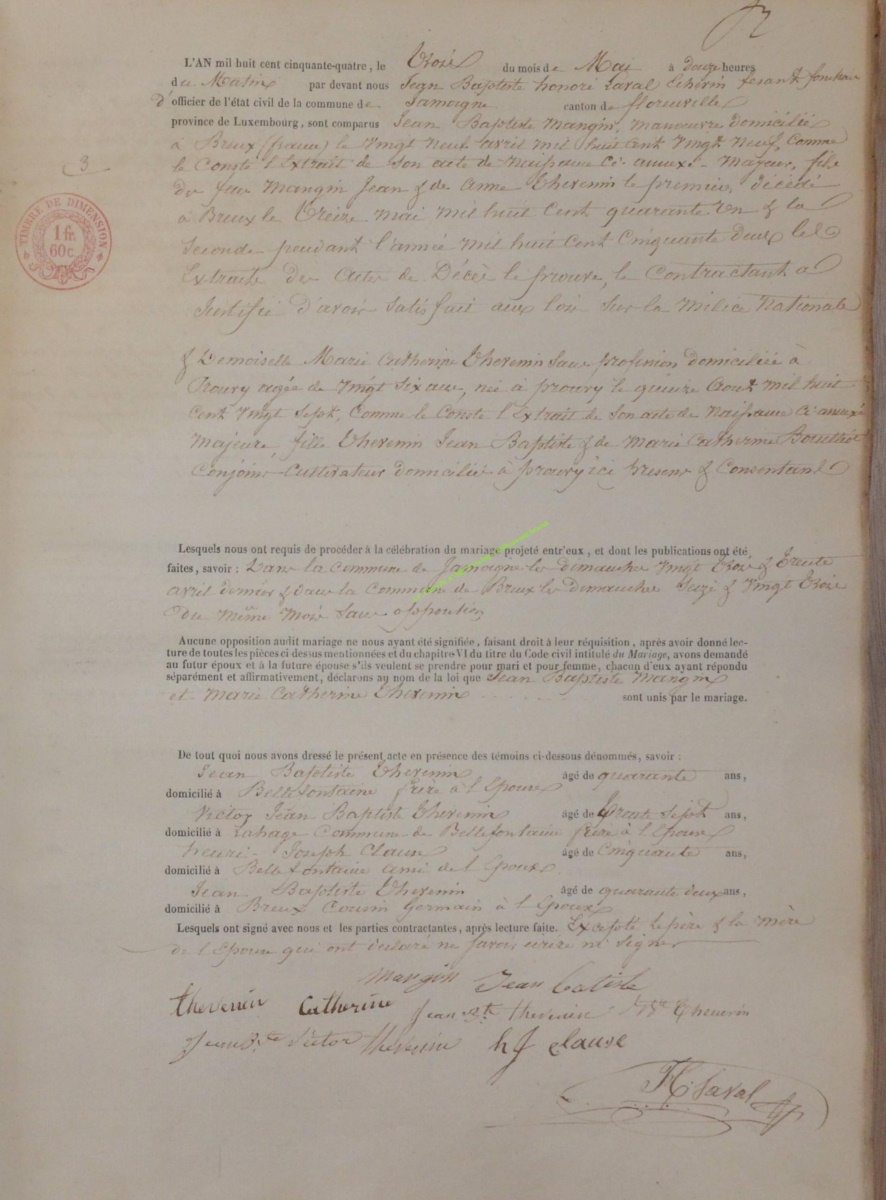 L'AN mil huit cent cinquante-quatre, le trois du mois de Mai à douze heures
du Matin par devant nous Jean Baptiste honoré Laval Echevin fesant fonction
D'officier de l'état civil de la commune de Jamoigne canton de florenville
province de Luxembourg, sont comparus Jean Baptiste Mangin, manœuvre domicilié
à Breux (france) le vingt neuf avril mil huit cent vingt neuf, comme
le Conste l'Extrait de son acte de Naissance ci-annexé. Majeur, fils
de Mangin Jean & de Anne Thevenin le premier, décédé
à Breux le treize mai mil huit cent quarante un & la
Seconde pendant l'année mil huit cent cinquante deux les
Extraits des actes de Décès le prouve, le contractant a
Justifié d'avoir satisfait aux lois sur la milice nationale
& Demoiselle Marie Catherine Thevenin sans profession domiciliée à
Prouvy agée de vingt six ans, née à prouvy le quinze Aout mil huit
Cent vingt sept, comme le Conste l'Extrait de son acte de Naissance ci annexé
Majeure, fille Thevenin Jean Baptiste & de Marie Catherine
Conjoins-Cultivateur domicilié à prouvy ici présens & Consentans
3
TIMBRE DE DIMENSION
1 fr.
60 c.
Lesquels nous ont requis de procéder à la célébration du mariage projeté entr'eux, et dont les publications ont été
faites, savoir : Dans la commune de Jamoigne les dimanches vingt trois & trente
avril dernier & dans la Commune de Breux les Dimanches Seize & vingt trois
du même mois sans opposition
Aucune opposition audit mariage ne nous ayant été signifiée, faisant droit à leur réquisition, après avoir donné lec-
ture de toutes les pièces ci dessus mentionnées et du chapitre VI du titre du Code civil intitulé du Mariage, avons demandé
au futur époux et à la future épouse s'ils veulent se prendre pour mari et pour femme, chacun d'eux ayant répondu
séparément et affirmativement, déclarons au nom de la loi que Jean Baptiste Mangin
et Marie Catherine Thevenin sont unis par le mariage.
De tout quoi nous avons dressé le présent acte en présence des témoins ci-dessous dénommés, savoir :
Jean Baptiste Thevenin âgé de quarante ans,
domicilié à Bellefontaine frère à l'Epouse
Victor Jean Baptiste Thevenin âgé de trente sept ans,
domicilié à Lahage Commune de Bellefontaine frère à l'Epouse
henri Joseph Claus âgé de Cinquante ans,
domicilié à Bellefontaine ami de l'Epoux
Jean Baptiste Thevenin âgé de quarante deux ans,
domicilié à Breux Cousin germain à l'Epoux
Lesquels ont signé avec nous et les parties contractantes, après lecture faite. Excepté le père & la mère
de l'Epouse qui ont déclaré ne savoir écrire ni signer
mangin Jean Batiste
thevenin Catherine Jean Bte thevenin Thevenin
Jean Bte Victor thevenin h J clause
H. Laval